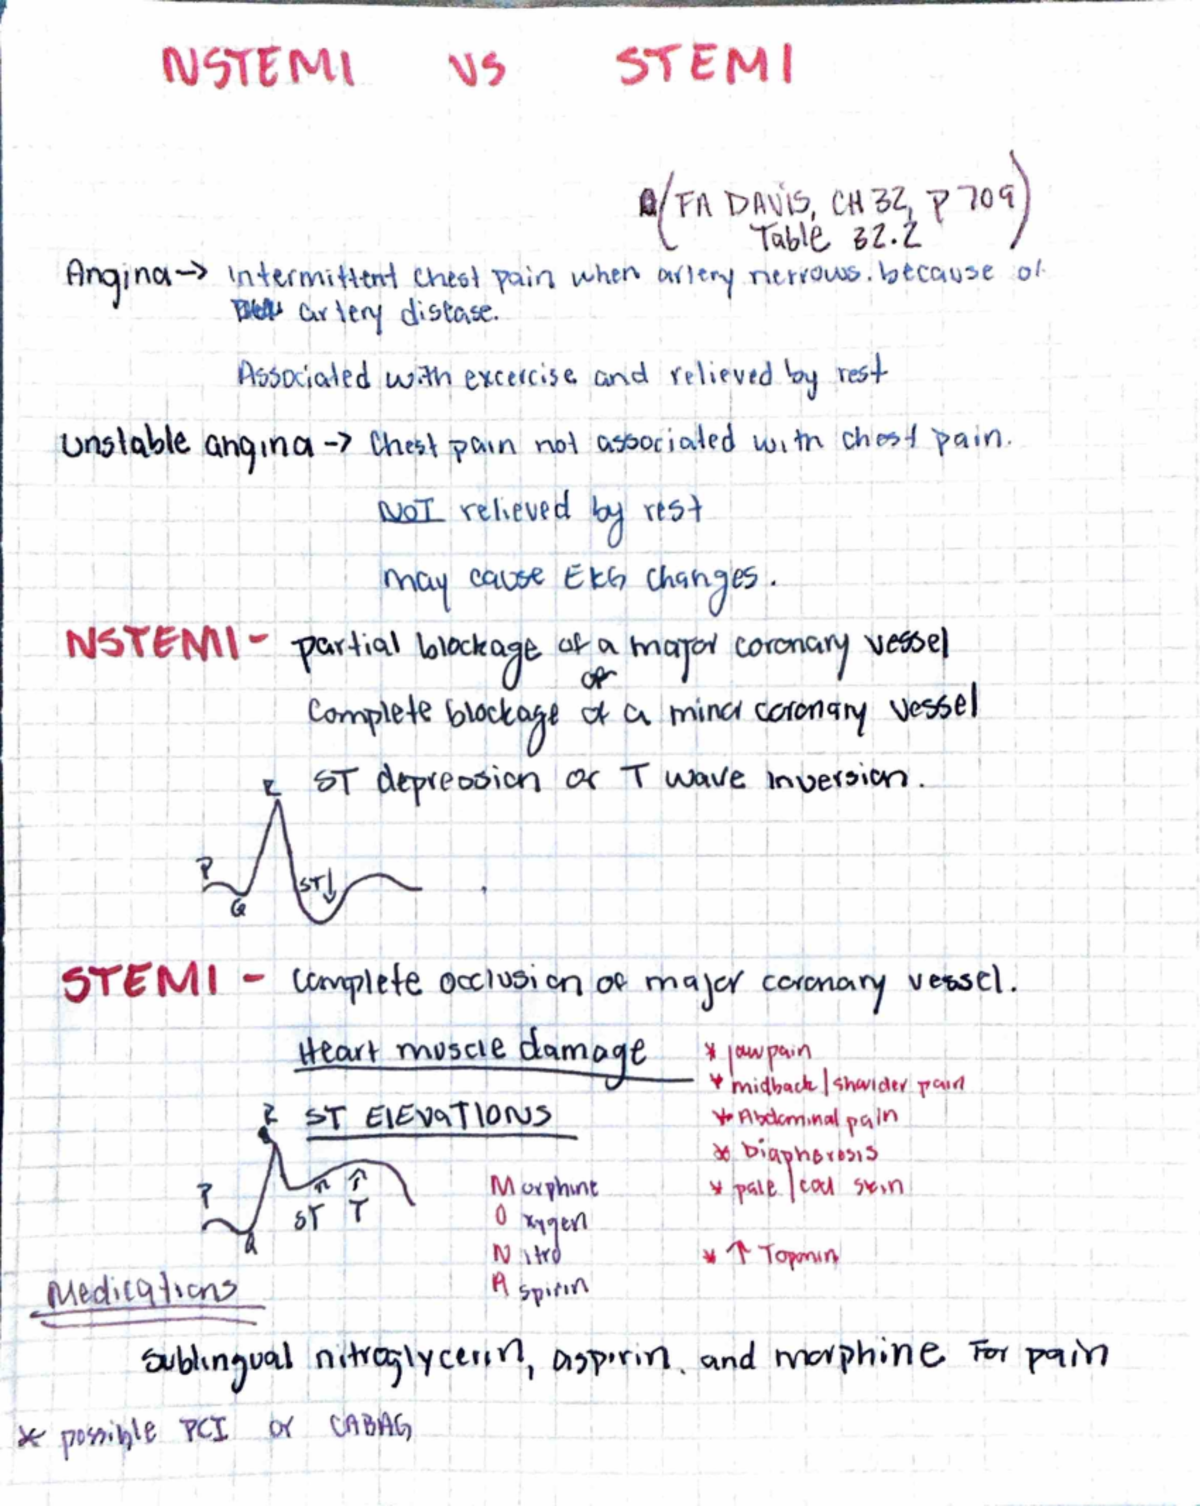 NSTEMI vs STEMI
(FA DAVIS, CH 32, P 709)
Table 32.2
Angina → intermittent chest pain when artery nerrows. because of
artery disease.
Associated with excercise and relieved by rest
Unstable angina → Chest pain not associated with chest pain.
NOT relieved by rest
may cause EKG changes.
NSTEMI - partial blockage of a major coronary vessel
or
Complete blockage of a minor coronary vessel
R ST depression or T wave inversion.
P
ST↓
Q
STEMI - complete occlusion of major coronary vessel.
Heart muscle damage
* jaw pain
* midback / shoulder pain
R ST ElEVATIONS
* Abdominal pain
* Diaphorosis
P
↑ ↑
ST T
Q
Morphine
Oxygen
Nitro
Aspirin
* pale / cool skin
* ↑ Toponin
Medications
sublingual nitroglycerin, aspirin, and morphine For pain
* possible PCI or CABAG